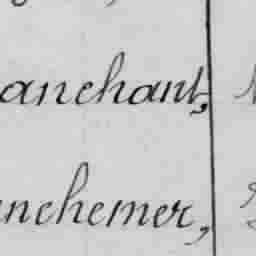 anchant,
nchemer,